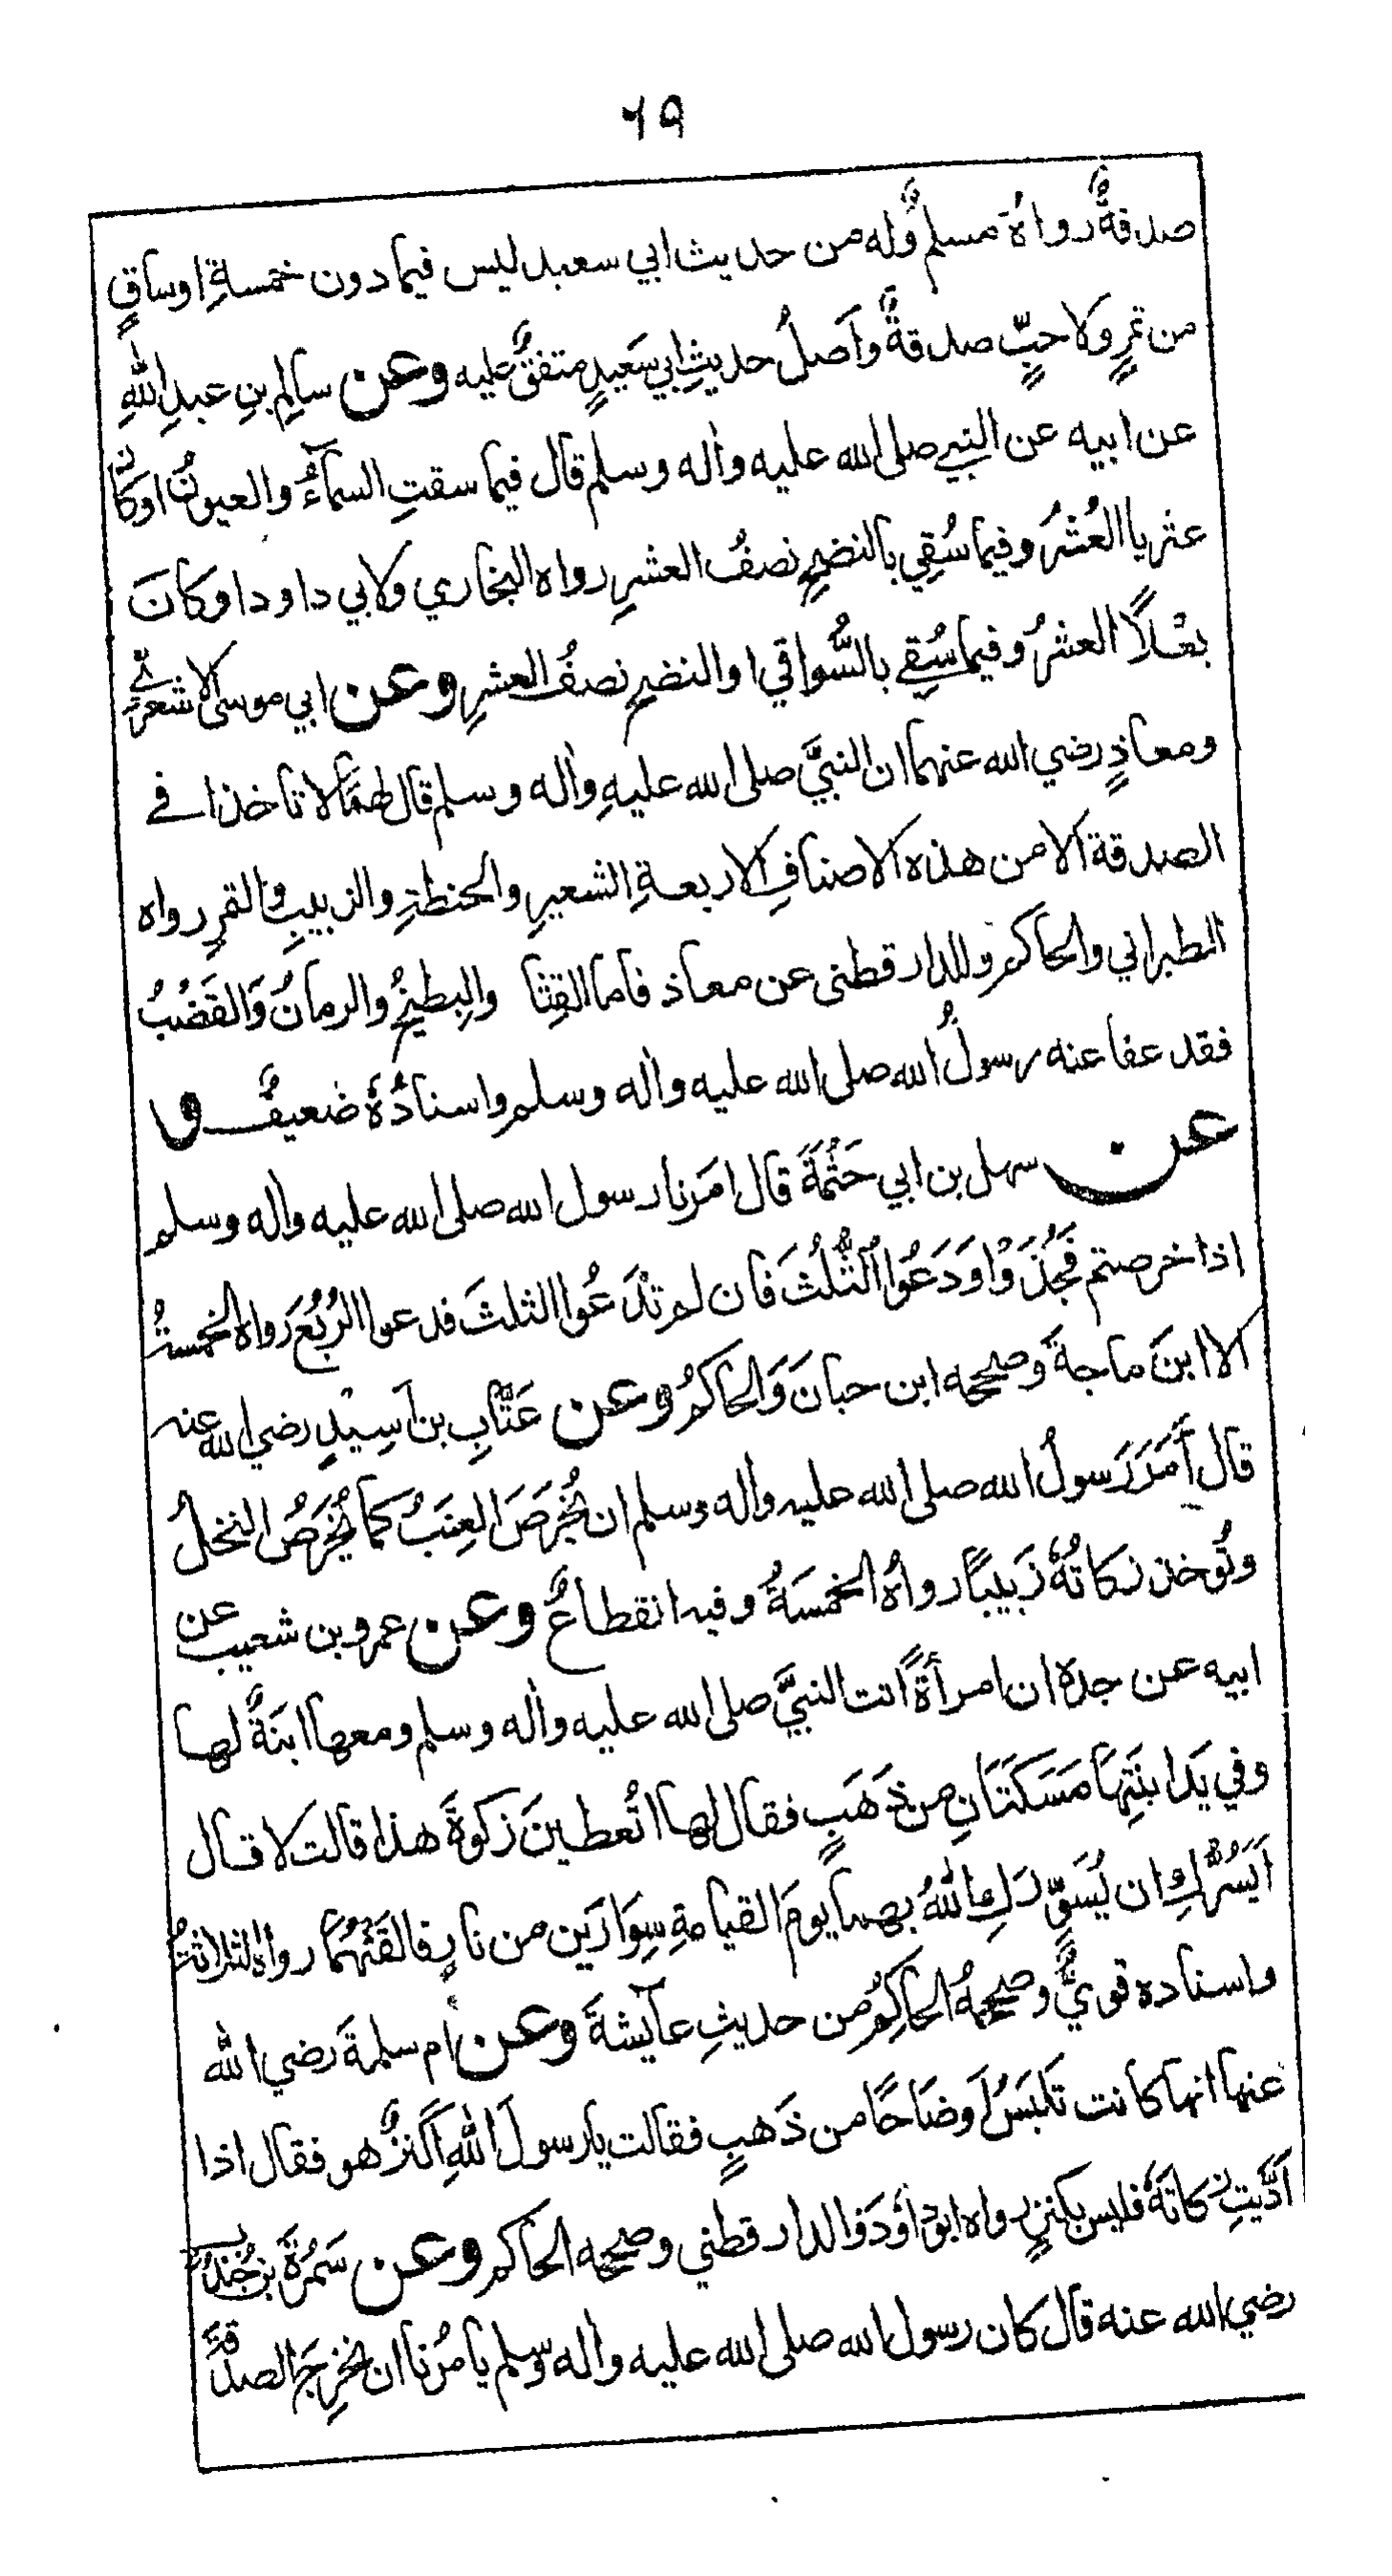 ٦٩
صدقةٌ رواهُ مسلمٌ وله من حديث ابي سعيد ليس فيما دون خمسةِ اوساقٍ
من تمرٍ ولا حبٍّ صدقةٌ وَاَصلُ حديثِ ابي سَعِيدٍ متفقٌ عليه وعن سالِم بنِ عبدِ اللهِ
عن ابيه عن النبي صلى الله عليه واٰله وسلم قال فيما سقتِ السمآءُ والعيونُ او كان
عثريا العُشْرُ وفيما سُقِي بالنضحِ نصفُ العشرِ رواه البخاري ولابي داود او كانَ
بعْلاً العشرُ وفيما سُقِي بالسَّواقي او النضحِ نصفُ العشرِ وعن ابي موسى الاشعريِّ
ومعاذٍ رضي الله عنهما ان النبيَّ صلى الله عليهِ واٰله وسلم قال لهمَا لا تاخذا في
الصدقة الا من هذه الاصنافِ الاربعةِ الشعيرِ والحنطةِ والزبيبِ والتمرِ رواه
الطبراني والحاكم وللدارقطنى عن معاذ فاما القِثا والبِطيخُ والرمانُ وَالقَضْبُ
فقد عفا عنه رسولُ الله صلى الله عليه واٰله وسلم واسنادُهٗ ضعيفٌ و
عن سهل بن ابي حَثْمَةَ قال امَرنا رسول الله صلى الله عليه واٰله وسلم
إذا خرصتم فَخُذُوْا وَدَعُوا الثُّلُثَ فان لم تَدَعُوا الثلثَ فدعوا الرُبُعَ رواه الخمسةُ
الا ابنَ ماجةَ وصححه ابن حبانَ وَالحاكمُ وعن عَتَّابِ بن اَسِيْدٍ رضي الله عنه
قال أَمَرَ رَسولُ الله صلى الله عليه واٰله وسلم ان يُخْرَصَ العِنَبُ كما يُخْرَصُ النخلُ
وتُوخذ زكاتُهٗ زَبِيبًا رواهُ الخمسَةُ وفيه انقطاعٌ وعن عمرو بن شعيب عن
ابيه عن جده ان امرأةً اتت النبيَّ صلى الله عليه واٰله وسلم ومعها ابنَةٌ لها
وفي يَدِ ابنَتِهَا مَسَكَتَانِ من ذَهَبٍ فقال لها اتُعطينَ زكوةَ هذا قالت لا قال
اَيَسُرُّكِ ان يُسَوِّرَكِ اللهُ بهما يومَ القيامةِ سِوَارَين من نارٍ فالقَتْهُمَا رواه الثلاثةُ
واسناده قويٌّ وصححهُ الحاكِمُ من حديثِ عآيشةَ وعن ام سلمةَ رضي الله
عنها انها كانت تَلبَسُ اَوضَاحًا من ذَهبٍ فقالت يا رسولَ اللهِ اَكَنزٌ هو فقال اذا
اَدَّيتِ زكاتَهٗ فليس بكنزٍ رواه ابو داؤدَ والدارقطني وصححه الحاكم وعن سَمُرَةَ بن جُندُبٍ
رضي الله عنه قال كان رسول الله صلى الله عليه واٰله وسلم يامُرنا ان نُخرِجَ الصدقةَ